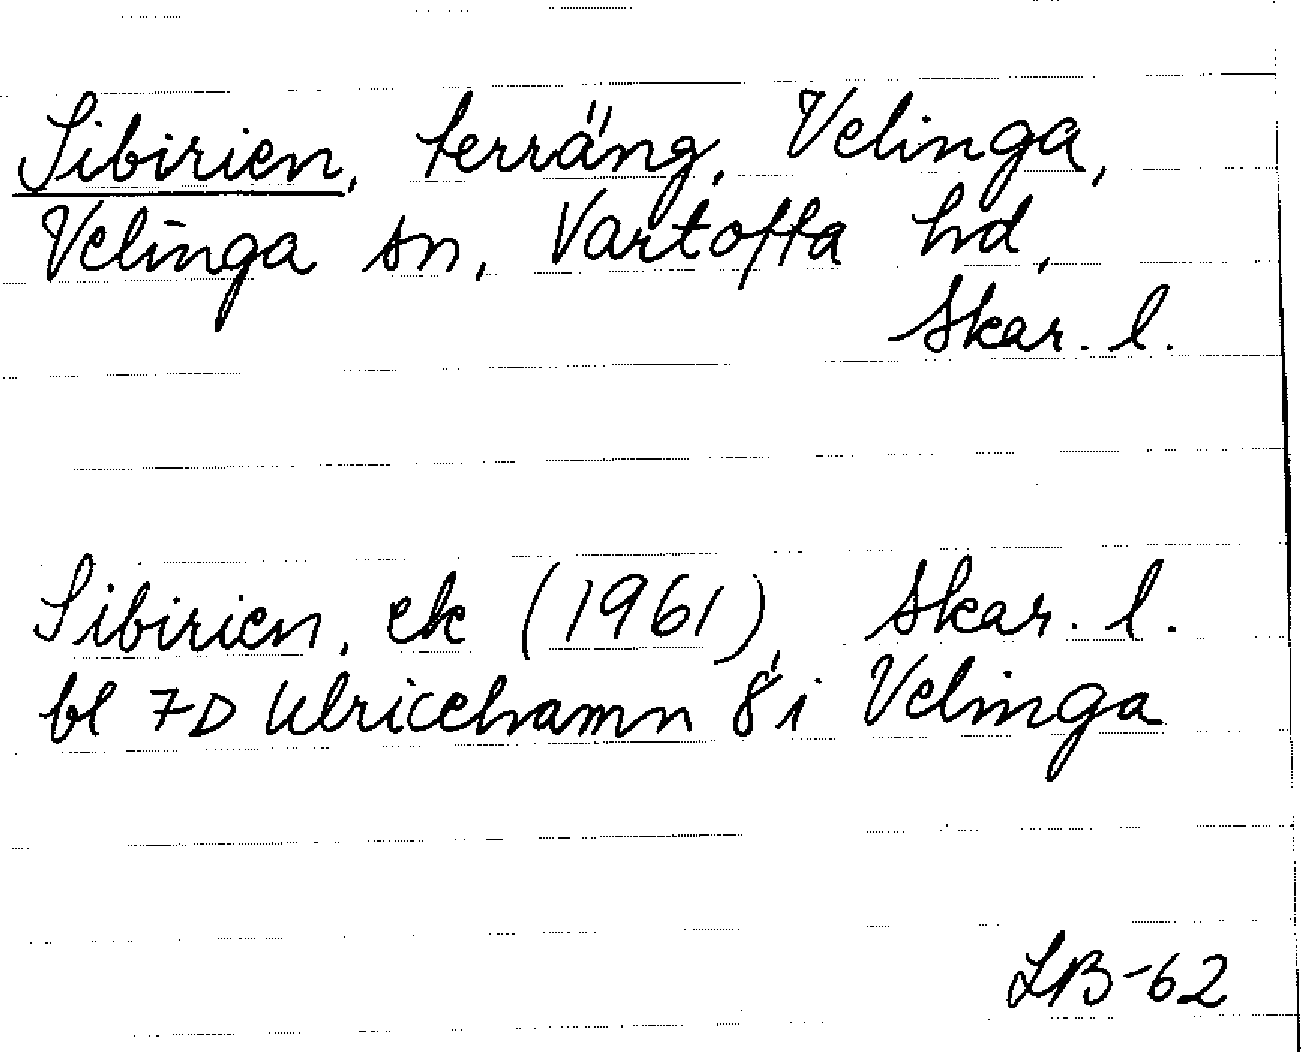 Sibirien, terräng, Velinga,
Velinga sn, Vartofta hd,
Skar. l.
Sibirien, ek (1961), Skar. l.
bl 7D Ulricehamn 8 i Velinga
LB-62